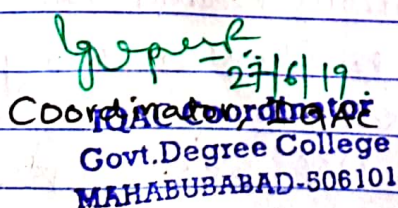 27/6/19
Coordinator, IQAC
IQAC Coordinator
Govt.Degree College
MAHABUBABAD-506101